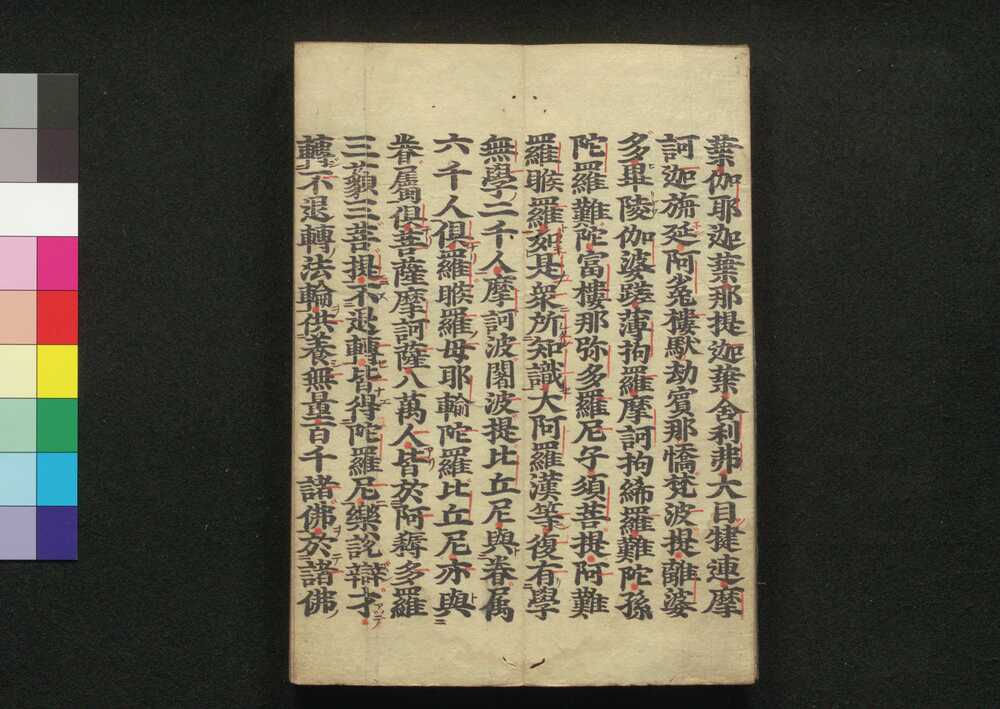 葉伽耶迦葉那提迦葉舎利弗大目犍連摩
訶迦旃延阿㝹樓駄劫賓那憍梵波提離婆
多畢陵伽婆蹉薄拘羅摩訶拘絺羅難陀孫
陀羅難陀富樓那弥多羅尼子須菩提阿難
羅睺羅如是衆所知識大阿羅漢等復有學
無學二千人摩訶波闍波提比丘尼與眷属
六千人俱羅睺羅母耶輸陀羅比丘尼亦與
眷屬俱菩薩摩訶薩八萬人皆於阿耨多羅
三藐三菩提不退轉皆得陀羅尼樂說辯才
轉不退轉法輪供養無量百千諸佛於諸佛